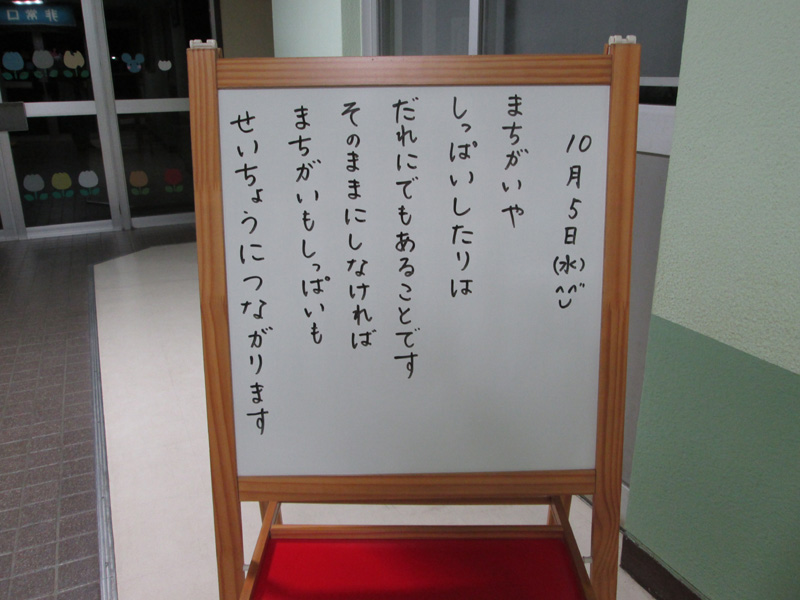 10月5日(水)
まちがいや
しっぱいしたりは
だれにでもあることです
そのままにしなければ
まちがいもしっぱいも
せいちょうにつながります
非常口